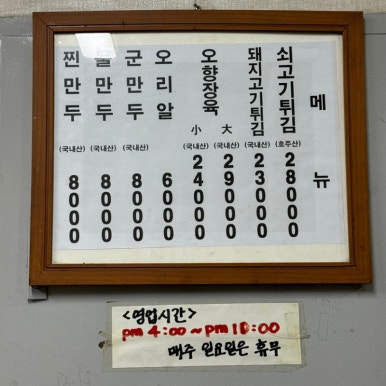 메뉴
쇠고기튀김 (호주산) 28000
돼지고기튀김 (국내산) 23000
오향장육
大 (국내산) 29000
小 (국내산) 24000
오리알 6000
군만두 (국내산) 8000
물만두 (국내산) 8000
찐만두 (국내산) 8000
<영업시간>
pm 4:00 ~ pm 10:00
매주 일요일은 휴무